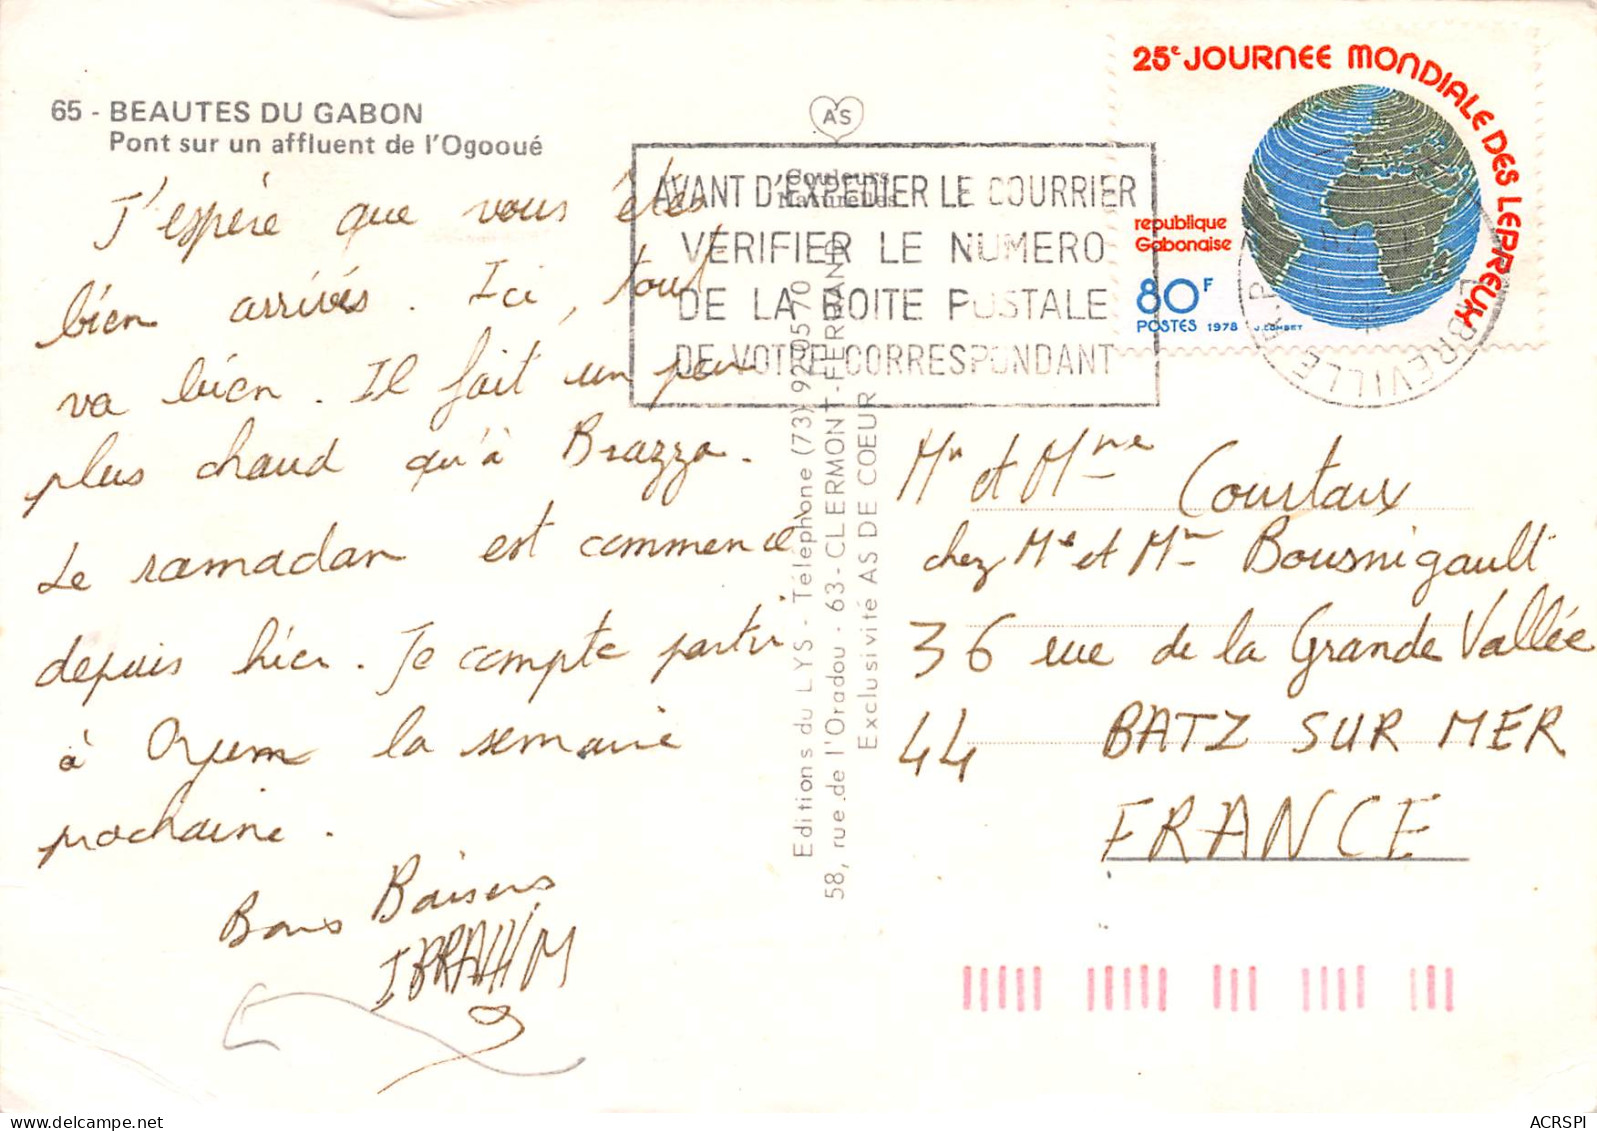 65 - BEAUTES DU GABON
Pont sur un affluent de l'Ogooué
J'espère que vous êtes
bien arrivés. Ici, tout
va bien. Il fait un peu
plus chaud qu'à Brazza.
Le ramadan est commencé
depuis hier. Je compte partir
à Oyem la semaine
prochaine.
Bons Baisers
IBRAHIM
AS
Couleurs
Naturelles
AVANT D'EXPEDIER LE COURRIER
VERIFIER LE NUMERO
DE LA BOITE POSTALE
DE VOTRE CORRESPONDANT
Editions du LYS - Téléphone (73) 92 05 70
58, rue de l'Oradou - 63 - CLERMONT-FERRAND
Exclusivité AS DE COEUR
25e JOURNEE MONDIALE DES LEPREUX
republique
Gabonaise
80F
POSTES 1978 J.COMBET
LIBREVILLE R.P.
Mr et Mme Courtaux
chez Me et Mr Bousnigault
36 rue de la Grande Vallée
44 BATZ SUR MER
FRANCE
ACRSPI